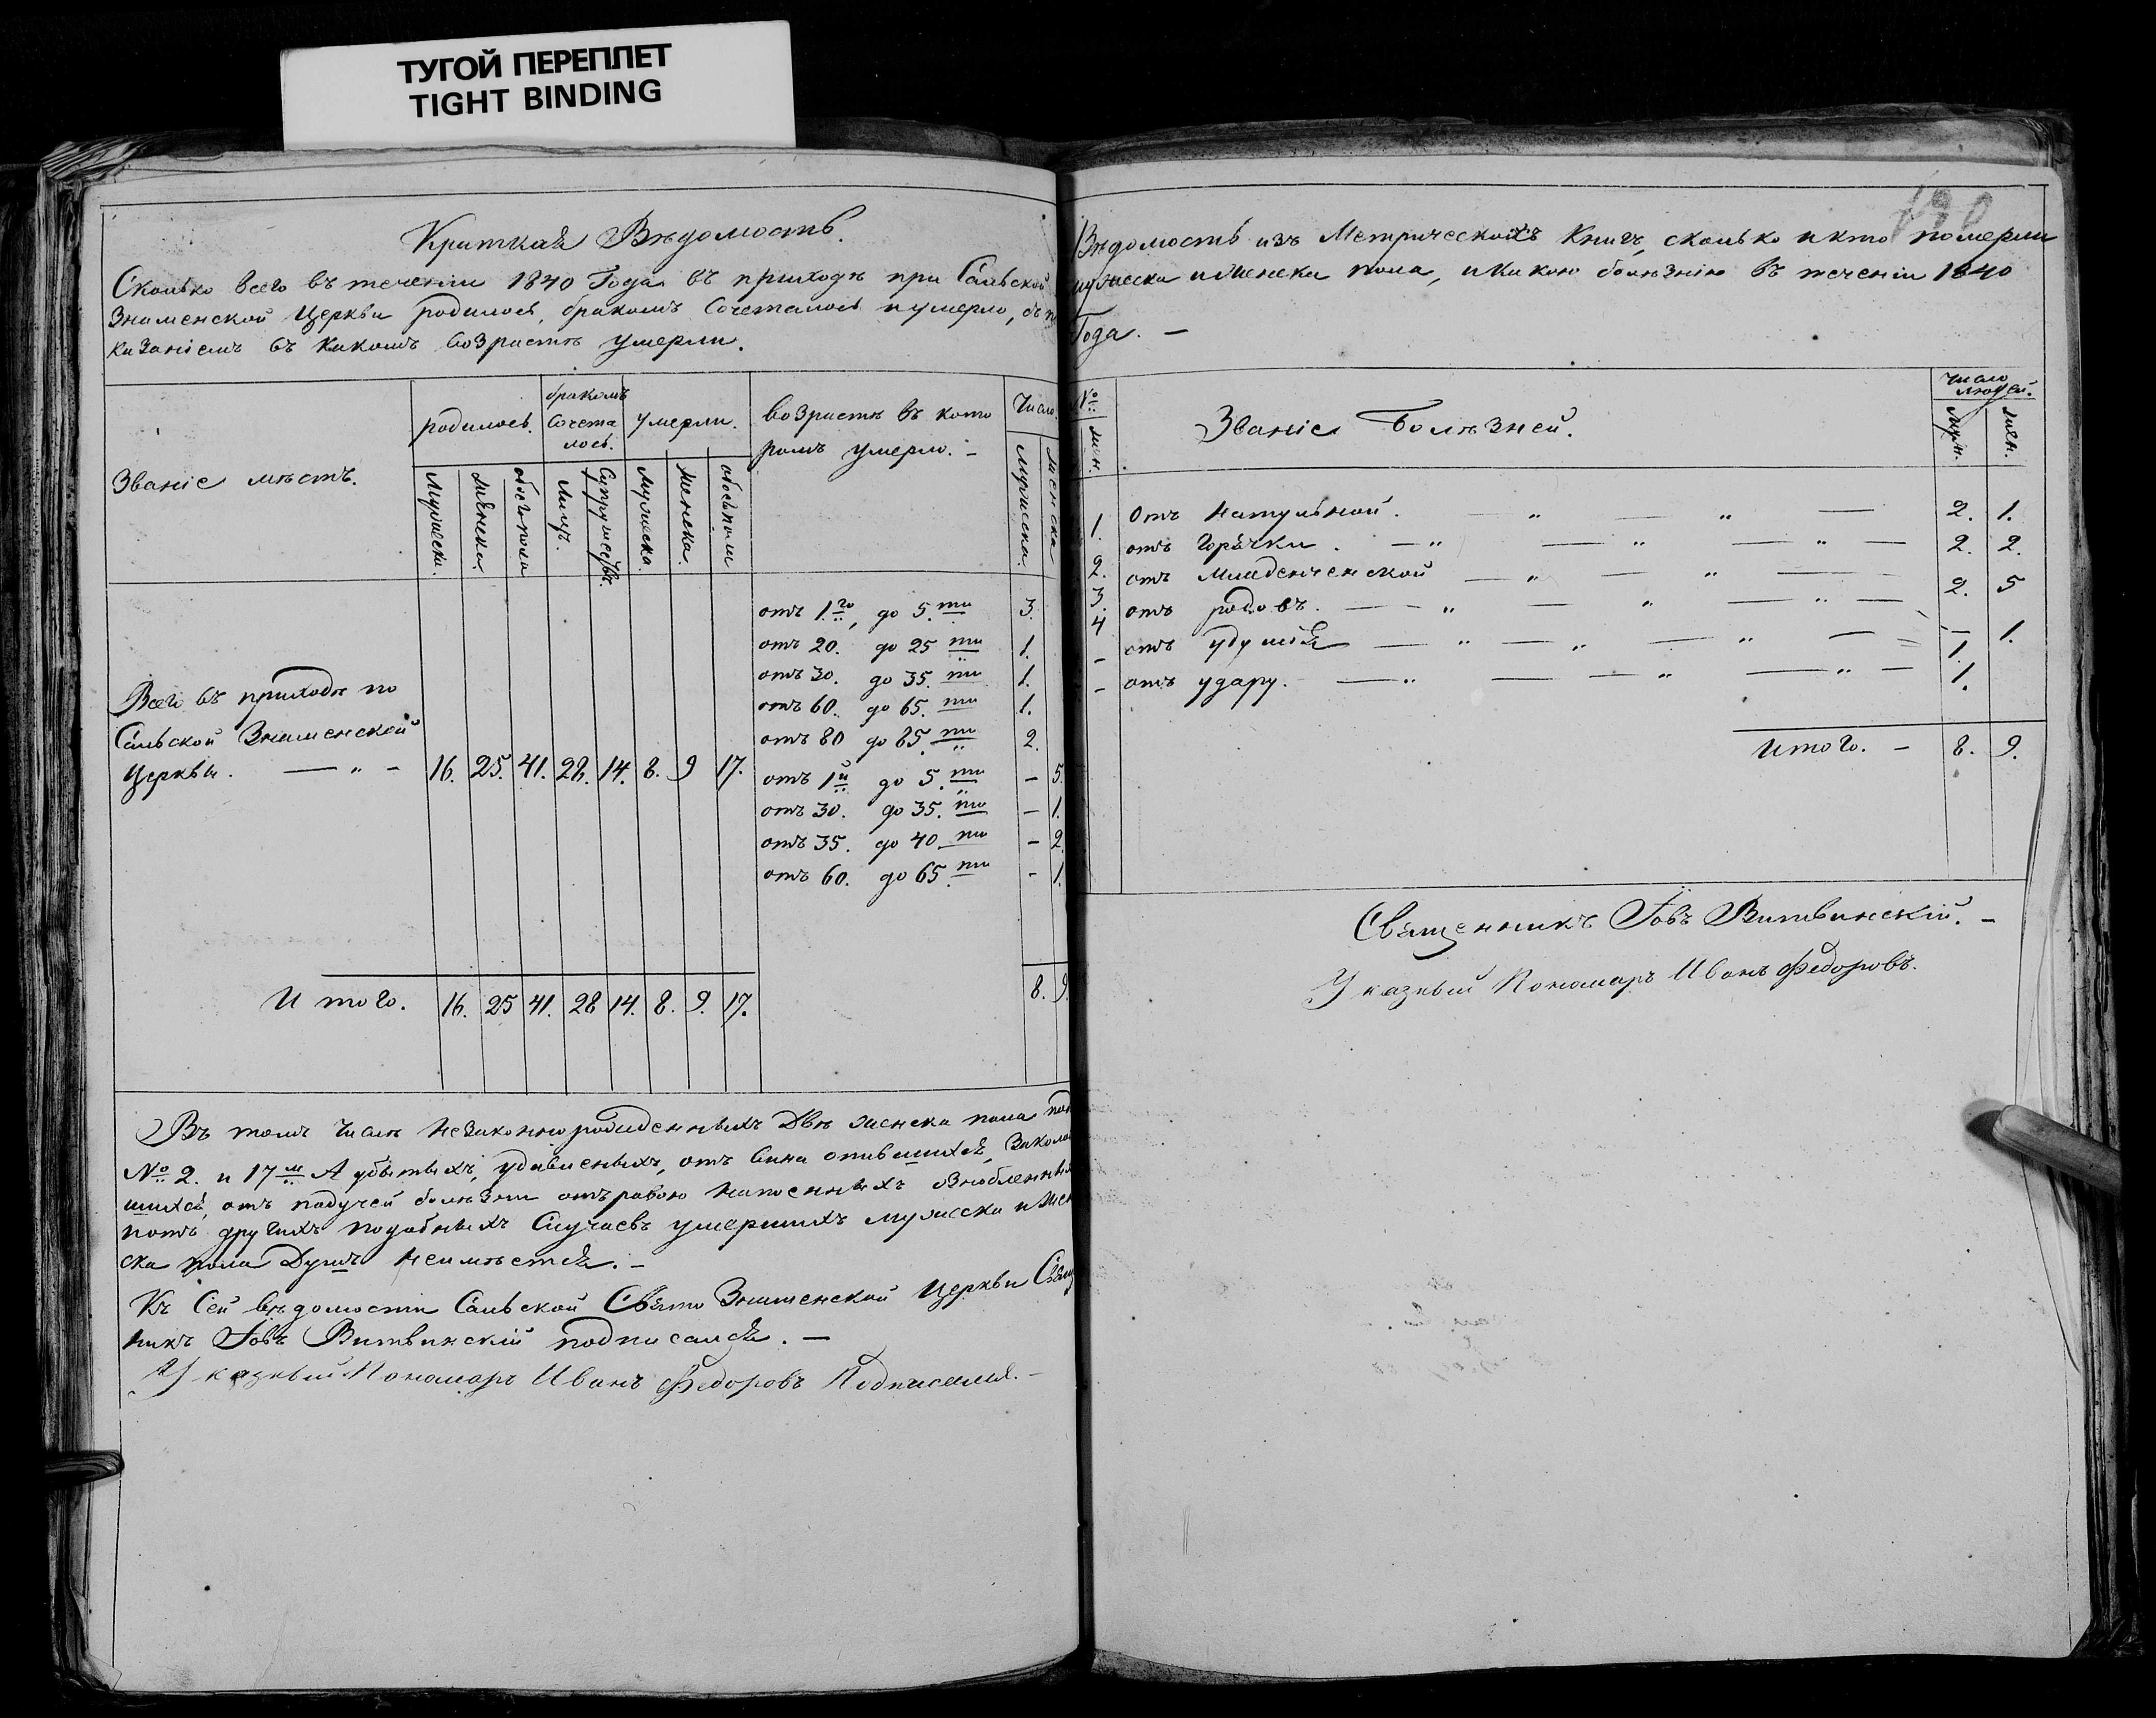 ТУГОЙ ПЕРЕПЛЕТ
TIGHT BINDING
Краткая Вѣдомость.
Сколько всего въ теченіи 1840 Года въ приходѣ при Сальской
Знаменской Церкви родилось, бракомъ Сочеталось и умерло, съ
казаніемъ въ какомъ возрастѣ умерли.
Званіе мѣстъ.
родилось.
бракомъ
Сочета
лось.
умерли.
возрастъ въ кото
ромъ умерло. -
Число.
Мужеска.
женска.
обоего пола
Лицъ.
Супружествъ.
Мужеска.
женска.
обоего пола
Мужеска.
женска
Всего въ приходѣ по
Сальской Знаменской
Церкви. — „ - 16. 25. 41. 28. 14. 8. 9 17.
отъ 1.го, до 5.ти 3.
отъ 20. до 25 ти 1.
отъ 30. до 35. ти 1.
отъ 60. до 65. ти 1.
отъ 80 до 85. ти 2.
отъ 1й до 5. ти - 5.
отъ 30. до 35. ти - 1.
отъ 35. до 40 ти - 2.
отъ 60. до 65. ти - 1.
Итого. 16. 25 41. 28 14. 8. 9. 17. 8. 9.
Въ томъ числѣ незаконнорожденныхъ Двѣ женска пола
№ 2. и 17м А убитыхъ, удавленыхъ, отъ вина опившихся,
шихся, отъ падучей болѣзни отъравою напоенныхъ
и отъ другихъ подобныхъ Случаевъ умершихъ мужеска и жен
ска пола Душъ неимѣется. -
Къ Сей вѣдомости Сальской Свято Знаменской Церкви Свящ
никъ Іовъ Витвинскій подписался. —
Указный Пономарь Иванъ Федоровъ Подписался. -
190
Вѣдомость изъ Метрическихъ Книгъ, сколько и кто померли
мужеска и женска пола, и какою болѣзнію въ теченіи 1840
Года. —
№
жен.
Званіе Болѣзней.
Число
людей.
Муж.
жен.
1. Отъ Натульной. — „ — „ — 2. 1.
2. отъ Горячки. — „ — „ — „ — 2. 2.
3. отъ Младенческой — „ — „ — 2. 5
4 отъ родовъ. — „ — „ — „ — — 1.
- отъ удушья — „ — „ — „ — 1.
- отъ удару. — „ — „ — „ — 1.
Итого. - 8. 9.
Священникъ Іовъ Витвинскій. -
Указный Пономарь Иванъ Федоровъ.